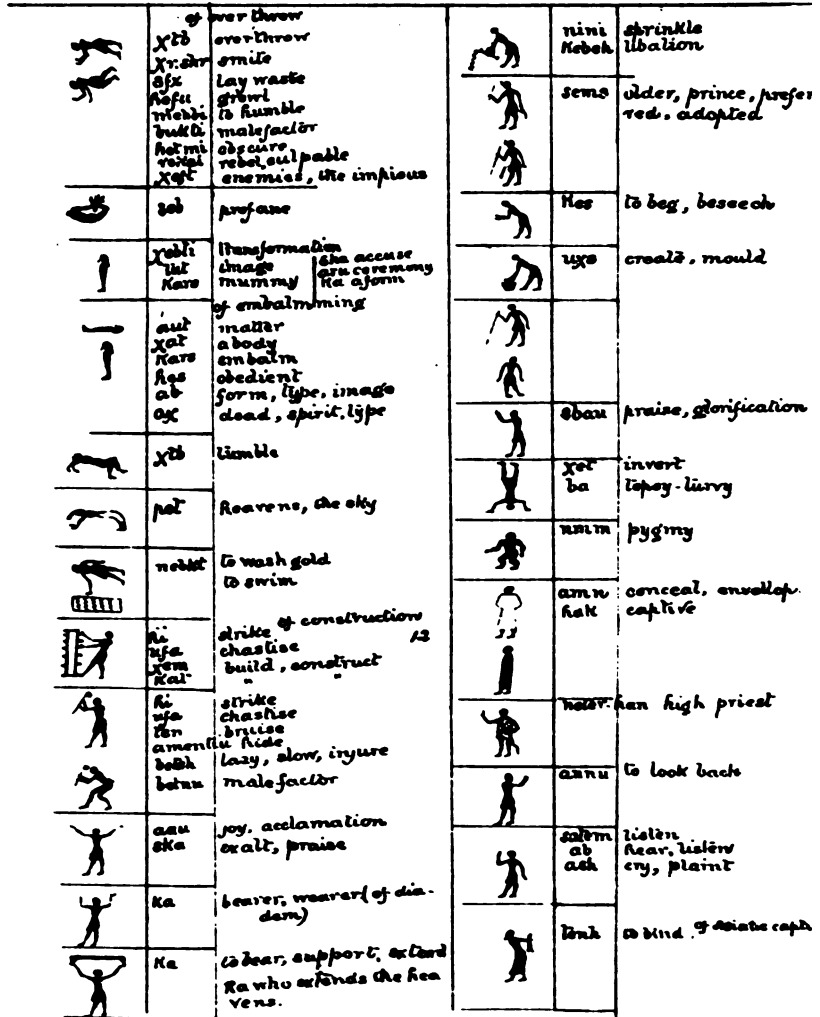 of overthrow
χtb overthrow
χr.shr smite
sfχ lay waste
hofu growl
to humble
malefactor
hetmi obscure
rebel, culpable
χeft enemies, the impious
seb profane
χebti transformation
tut image | sha accuse
Karo mummy | aru ceremony
Ka a form
of embalmming
aut matter
χat a body
Karo embalm
hes obedient
ab form, type, image
aχ dead, spirit, type
χtb tumble
pet Heavens, the sky
nebkt to wash gold
to swim
of construction
hi strike 12
ufa chastise
χem build, construct
Kat " "
hi strike
ufa chastise
ten bruise
amentiu hide
betsh lazy, slow, injure
betnu malefactor
aau joy, acclamation
ska exalt, praise
Ka bearer, wearer (of dia-
dem)
Ka to bear, support, extend
Ra who extends the hea
vens.
nini sprinkle
Kebeh libation
sems elder, prince, prefer
red, adopted
Hes to beg, beseech
uχs create, mould
sbau praise, glorification
χet invert
ba topsy-turvy
nmm pygmy
amn conceal, envellop.
hak captive
neter-han high priest
annu to look back
satem listen
ab hear, listen
ash cry, plaint
tenh to bind. of asiatic capti